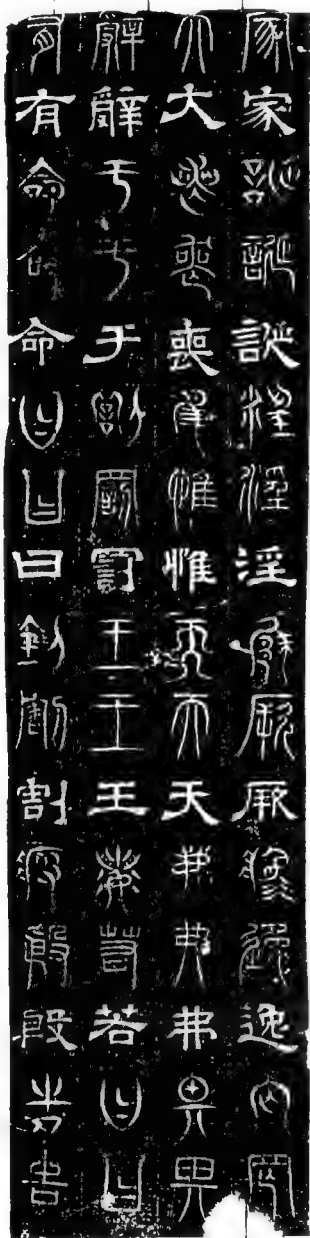 家家誕誕誕淫淫淫厥厥厥逸逸逸罔罔
大大喪喪喪惟惟惟天天天弗弗弗畀畀
辭辭于于于罰罰罰王王王若若若曰曰
有有命命命曰曰曰割割割殷殷殷告告